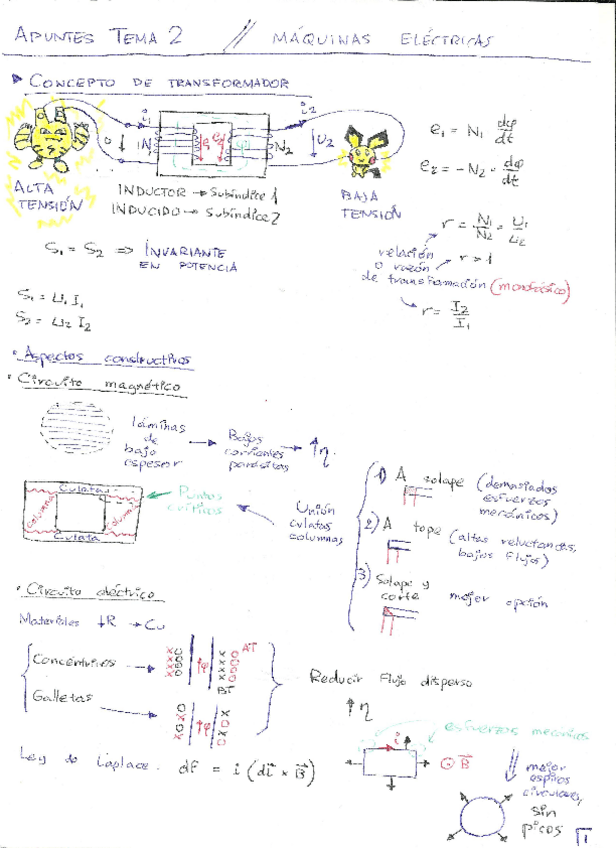 APUNTES TEMA 2 // MÁQUINAS ELÉCTRICAS
CONCEPTO DE TRANSFORMADOR
i₁ i₂
U₁ N₁ e₁ e₂ N₂ U₂
ALTA TENSIÓN
INDUCTOR → Subíndice 1
INDUCIDO → Subíndice 2
BAJA TENSIÓN
e₁ = N₁ dφ/dt
e₂ = -N₂ · dφ/dt
S₁ = S₂ ⇒ INVARIANTE EN POTENCIA
r = N₁/N₂ = U₁/U₂
relación o razón de transformación (monofásico)
r > 1
r = I₂/I₁
S₁ = U₁ I₁
S₂ = U₂ I₂
• Aspectos constructivos
• Circuito magnético
láminas de bajo espesor → Bajas corrientes parásitas → ↑η
Culata
Columna Columna
Culata
Puntos críticos
Unión culatas columnas
1) A solape (demasiados esfuerzos mecánicos)
2) A tope (altas reluctancias, bajos flujos)
3) Solape y corte mejor opción
• Circuito eléctrico
Materiales ↓R → Cu
Concéntricos →
Galletas →
↑φ BT AT
↑φ
Reducir Flujo disperso
↑η
Ley de Laplace. dF = i (dl × B)
esfuerzos mecánicos
i
⊙ B
mejor espiras circulares, sin picos
1